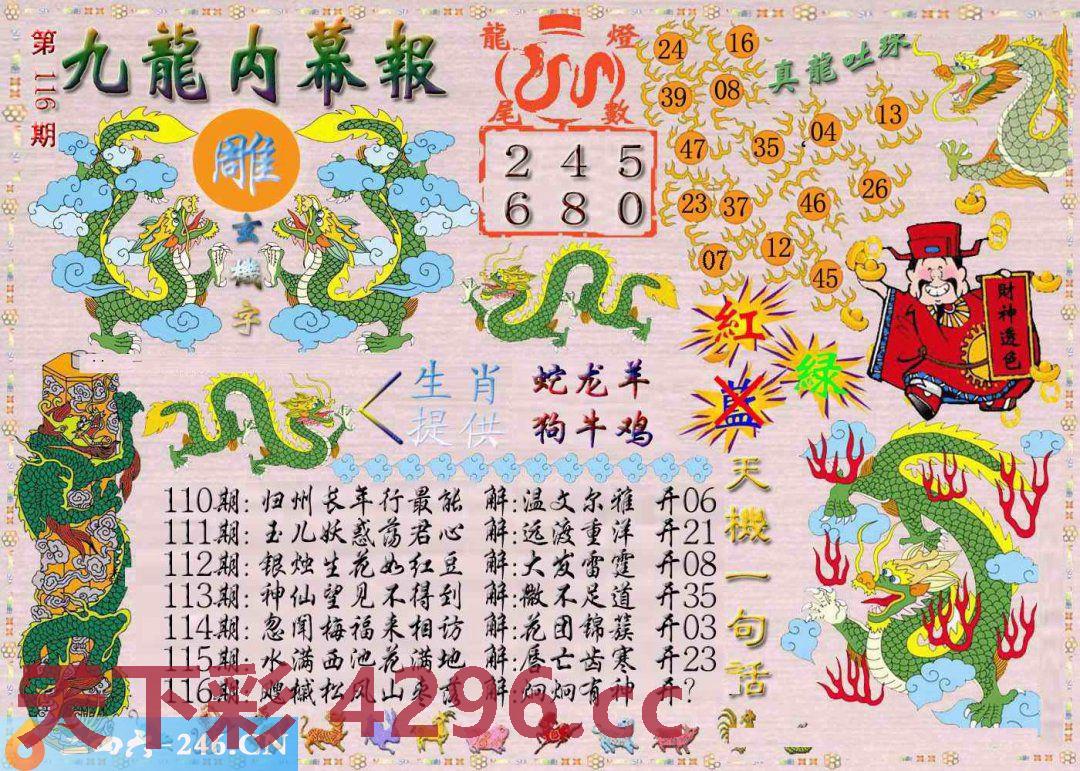 第116期
九龍内幕報
龍尾燈數
2 4 5
6 8 0
真龍吐珠
24 16
39 08
47 35 04 13
23 37 46 26
07 12 45
雕
玄機字
財神透色
紅
蓝
緑
生肖
提供
蛇龙羊
狗牛鸡
天機一句话
110期: 归州长年行最能 解:温文尔雅 开06
111期: 玉儿妖惑荡君心 解:远渡重洋 开21
112期: 银烛生花如红豆 解:大发雷霆 开08
113期: 神仙望见不得到 解:微不足道 开35
114期: 忽闻梅福来相访 解:花团锦簇 开03
115期: 水满西池花满地 解:唇亡齿寒 开23
116期: 松风山枣落 解:炯炯有神 开?
天下彩 4296.cc
=246.CN